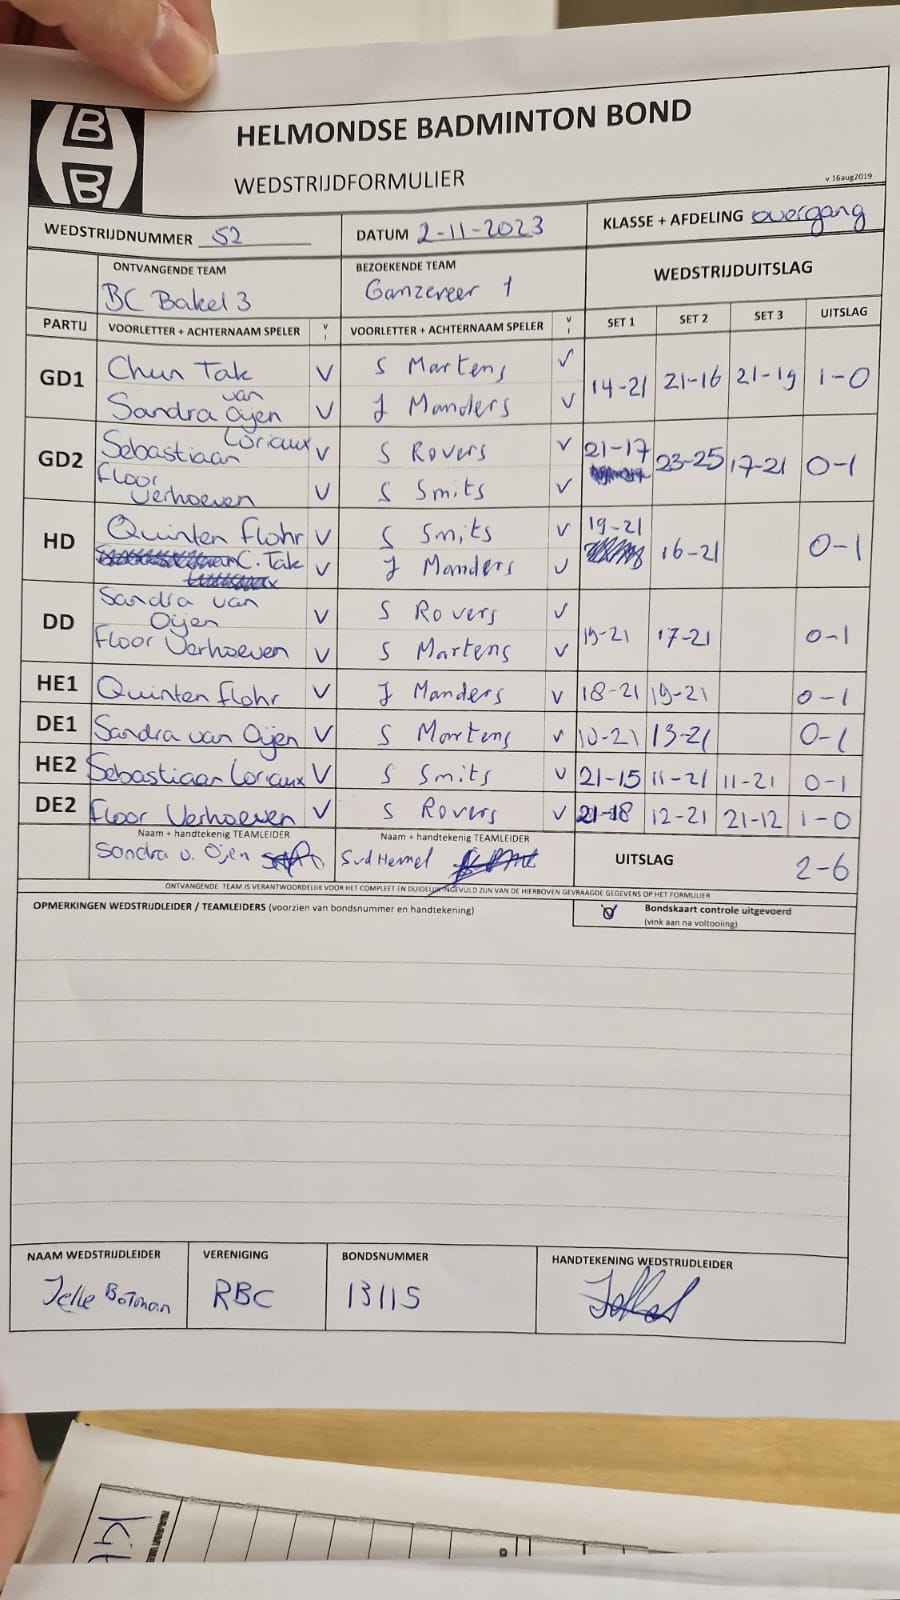 B
B
HELMONDSE BADMINTON BOND
WEDSTRIJDFORMULIER
v 16aug2019
WEDSTRIJDNUMMER 52 DATUM 2-11-2023 KLASSE + AFDELING overgang
ONTVANGENDE TEAM BEZOEKENDE TEAM WEDSTRIJDUITSLAG
BC Bakel 3 Ganzeveer 1
PARTIJ VOORLETTER + ACHTERNAAM SPELER v VOORLETTER + ACHTERNAAM SPELER v SET 1 SET 2 SET 3 UITSLAG
GD1 Chun Tak V S Martens V 14-21 21-16 21-19 1-0
Sandra van Oijen V J Manders V
GD2 Sebastiaan Loriaux V S Rovers V 21-17 23-25 17-21 0-1
Floor Verhoeven V S Smits V
HD Quinten Flohr V S Smits V 19-21 16-21 0-1
C. Tak V J Manders V
DD Sandra van Oijen V S Rovers V 15-21 17-21 0-1
Floor Verhoeven V S Martens V
HE1 Quinten Flohr V J Manders V 18-21 19-21 0-1
DE1 Sandra van Oijen V S Martens V 10-21 13-21 0-1
HE2 Sebastiaan Loriaux V S Smits V 21-15 11-21 11-21 0-1
DE2 Floor Verhoeven V S Rovers V 21-18 12-21 21-12 1-0
Naam + handtekenig TEAMLEIDER Naam + handtekenig TEAMLEIDER UITSLAG 2-6
Sandra v. Oijen SvdHemel
ONTVANGENDE TEAM IS VERANTWOORDELIJK VOOR HET COMPLEET EN DUIDELIJK INGEVULD ZIJN VAN DE HIERBOVEN GEVRAAGDE GEGEVENS OP HET FORMULIER
OPMERKINGEN WEDSTRIJDLEIDER / TEAMLEIDERS (voorzien van bondsnummer en handtekening) Bondskaart controle uitgevoerd
(vink aan na voltooiing)
NAAM WEDSTRIJDLEIDER VERENIGING BONDSNUMMER HANDTEKENING WEDSTRIJDLEIDER
Jelle Botman RBC 13115